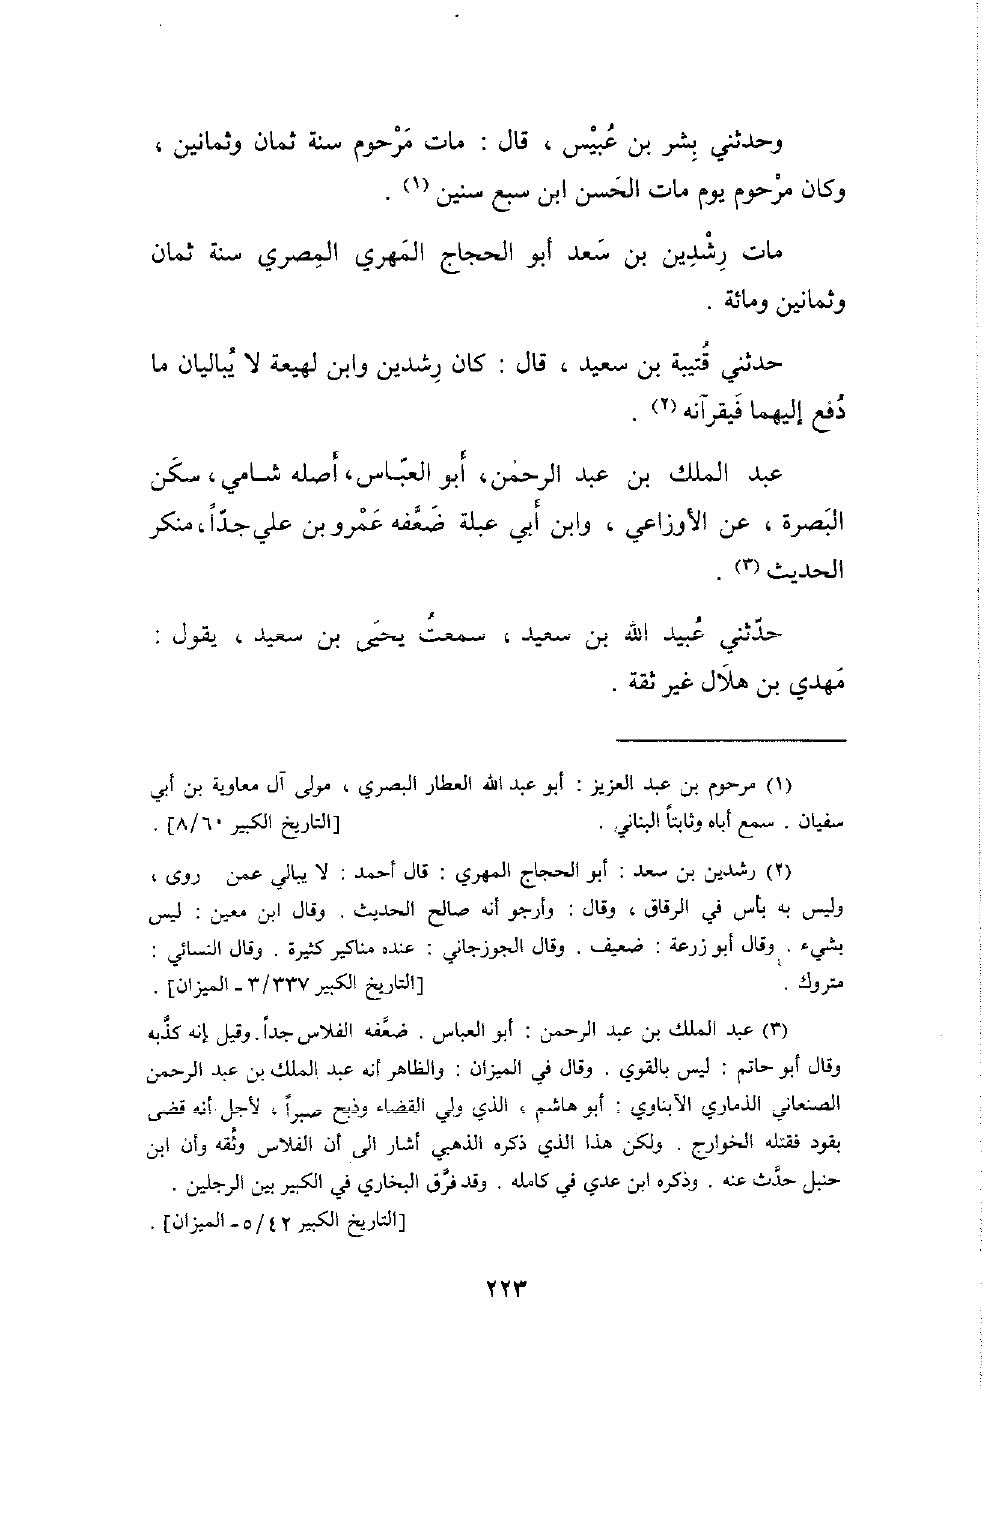 وحدثني بِشر بن عُبيْس ، قال : مات مَرْحوم سنة ثمان وثمانين ،
وكان مرْحوم يوم مات الحَسن ابن سبع سنين (١) .
مات رِشْدِين بن سَعد أبو الحجاج المَهري المِصري سنة ثمان
وثمانين ومائة .
حدثني قُتيبة بن سعيد ، قال : كان رِشدين وابن لهيعة لا يُباليان ما
دُفع إليهما فَيقرآنه (٢) .
عبد الملك بن عبد الرحمٰن، أَبو العبّاس، أَصله شامي، سكَن
البَصرة ، عن الأوزاعي ، وابن أَبي عبلة ضَعَّفه عَمْرو بن علي جدّاً، منكر
الحديث (٣) .
حدّثني عُبيد الله بن سعيد ، سمعتُ يحيَى بن سعيد ، يقول :
مَهدي بن هلَال غير ثقة .
(١) مرحوم بن عبد العزيز : أبو عبد الله العطار البصري ، مولى آل معاوية بن أبي
سفيان . سمع أباه وثابتاً البناني . [التاريخ الكبير ٨/٦٠] .
(٢) رشدين بن سعد : أبو الحجاج المهري : قال أحمد : لا يبالي عمن روى ،
وليس به بأس في الرقاق ، وقال : وأرجو أنه صالح الحديث . وقال ابن معين : ليس
بشيء . وقال أبو زرعة : ضعيف . وقال الجوزجاني : عنده مناكير كثيرة . وقال النسائي :
متروك . [التاريخ الكبير ٣/٣٣٧ ـ الميزان] .
(٣) عبد الملك بن عبد الرحمن : أبو العباس . ضعَّفه الفلاس جداً. وقيل إنه كذَّبه
وقال أبو حاتم : ليس بالقوي . وقال في الميزان : والظاهر أنه عبد الملك بن عبد الرحمن
الصنعاني الذماري الأبناوي : أبو هاشم ، الذي ولي القضاء وذبح صبراً ، لأجل أنه قضى
بقود فقتله الخوارج . ولكن هذا الذي ذكره الذهبي أشار الى أن الفلاس وثَّقه وأن ابن
حنبل حدَّث عنه . وذكره ابن عدي في كامله . وقد فرَّق البخاري في الكبير بين الرجلين .
[التاريخ الكبير ٥/٤٢ ـ الميزان] .
٢٢٣